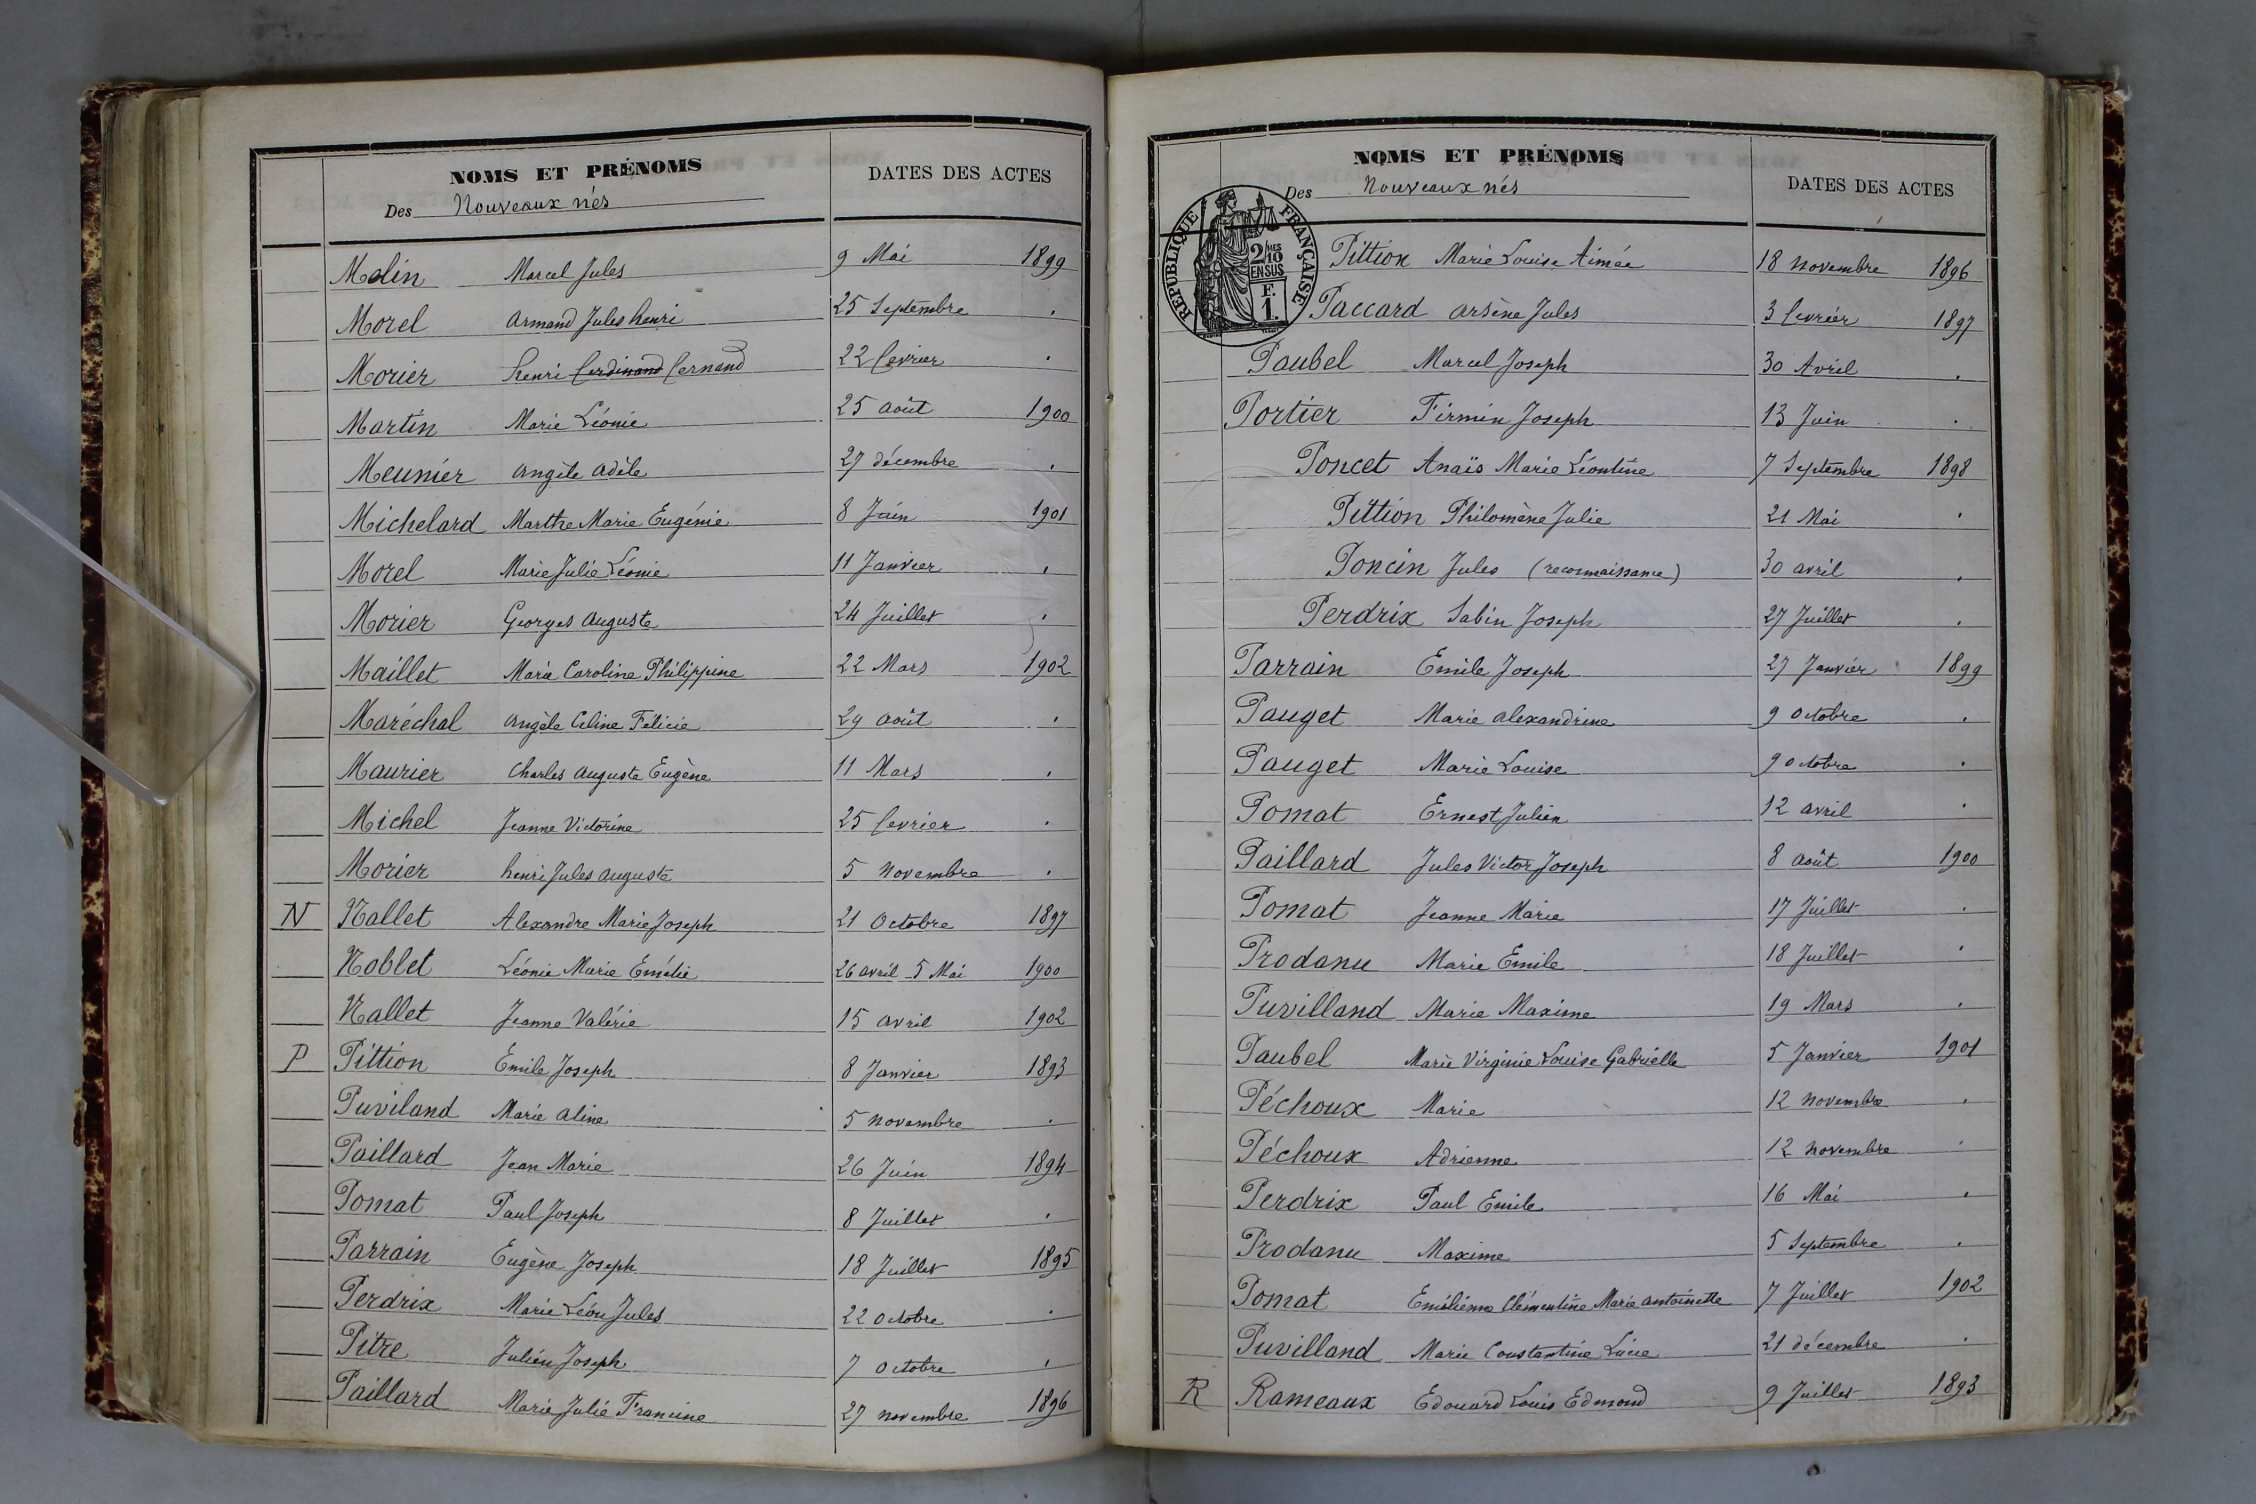 NOMS ET PRÉNOMS DATES DES ACTES
Des Nouveaux nés
Molin Marcel Jules 9 Mai 1899
Morel Armand Jules henri 25 Septembre .
Morier henri Ferdinand Fernand 22 fevrier .
Martin Marie Léonie 25 août 1900
Meunier angèle adèle 27 décembre .
Michelard Marthe Marie Eugénie 8 Juin 1901
Morel Marie Julie Léonie 11 Janvier .
Morier Georges auguste 24 Juillet .
Maillet Marie Caroline Philippine 22 Mars 1902
Maréchal angèle Celine Félicie 29 août .
Maurier Charles auguste Eugène 11 Mars .
Michel Jeanne Victorine 25 fevrier .
Morier henri Jules auguste 5 novembre .
N Nallet Alexandre Marie Joseph 21 Octobre 1897
Noblet Léonie Marie Emélie 26 avril 5 Mai 1900
Nallet Jeanne Valérie 15 avril 1902
P Pittion Emile Joseph 8 Janvier 1893
Puviland Marie aline 5 novembre .
Paillard Jean Marie 26 Juin 1894
Pomat Paul Joseph 8 Juillet .
Parrain Eugène Joseph 18 Juillet 1895
Perdrix Marie Léon Jules 22 octobre .
Pitre Julien Joseph 7 octobre .
Paillard Marie Julie Francine 27 novembre 1896
NOMS ET PRÉNOMS DATES DES ACTES
Des Nouveaux nés
REPUBLIQUE FRANÇAISE
2/10 MES
EN SUS
F.
1.
Pittion Marie Louise Aimée 18 novembre 1896
Paccard arsène Jules 3 fevrier 1897
Paubel Marcel Joseph 30 Avril .
Portier Firmin Joseph 13 Juin .
Poncet Anaïs Marie Léontine 7 Septembre 1898
Pittion Philomène Julie 21 Mai .
Poncin Jules (reconnaissance) 30 avril .
Perdrix Sabin Joseph 27 Juillet .
Parrain Emile Joseph 27 Janvier 1899
Pauget Marie alexandrine 9 octobre .
Pauget Marie Louise 9 octobre .
Pomat Ernest Julien 12 avril .
Paillard Jules Victor Joseph 8 août 1900
Pomat Jeanne Marie 17 Juillet .
Prodanu Marie Emile 18 Juillet .
Puvilland Marie Maxime 19 Mars .
Paubel Marie Virginie Louise Gabrielle 5 Janvier 1901
Péchoux Marie 12 novembre .
Péchoux Adrienne 12 novembre .
Perdrix Paul Emile 16 Mai .
Prodanu Maxime 5 Septembre .
Pomat Emilienne Clémentine Marie antoinette 7 Juillet 1902
Puvilland Marie Constantine Lucie 21 décembre .
R Rameaux Edouard Louis Edmond 9 Juillet 1893